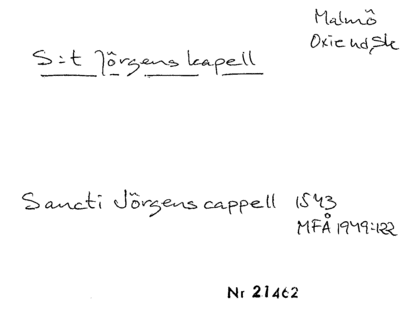 Malmö
Oxie hd, Sk
S:t Jörgens kapell
Sancti Jörgens cappell 1543
MFÅ 1949:122
Nr 21462